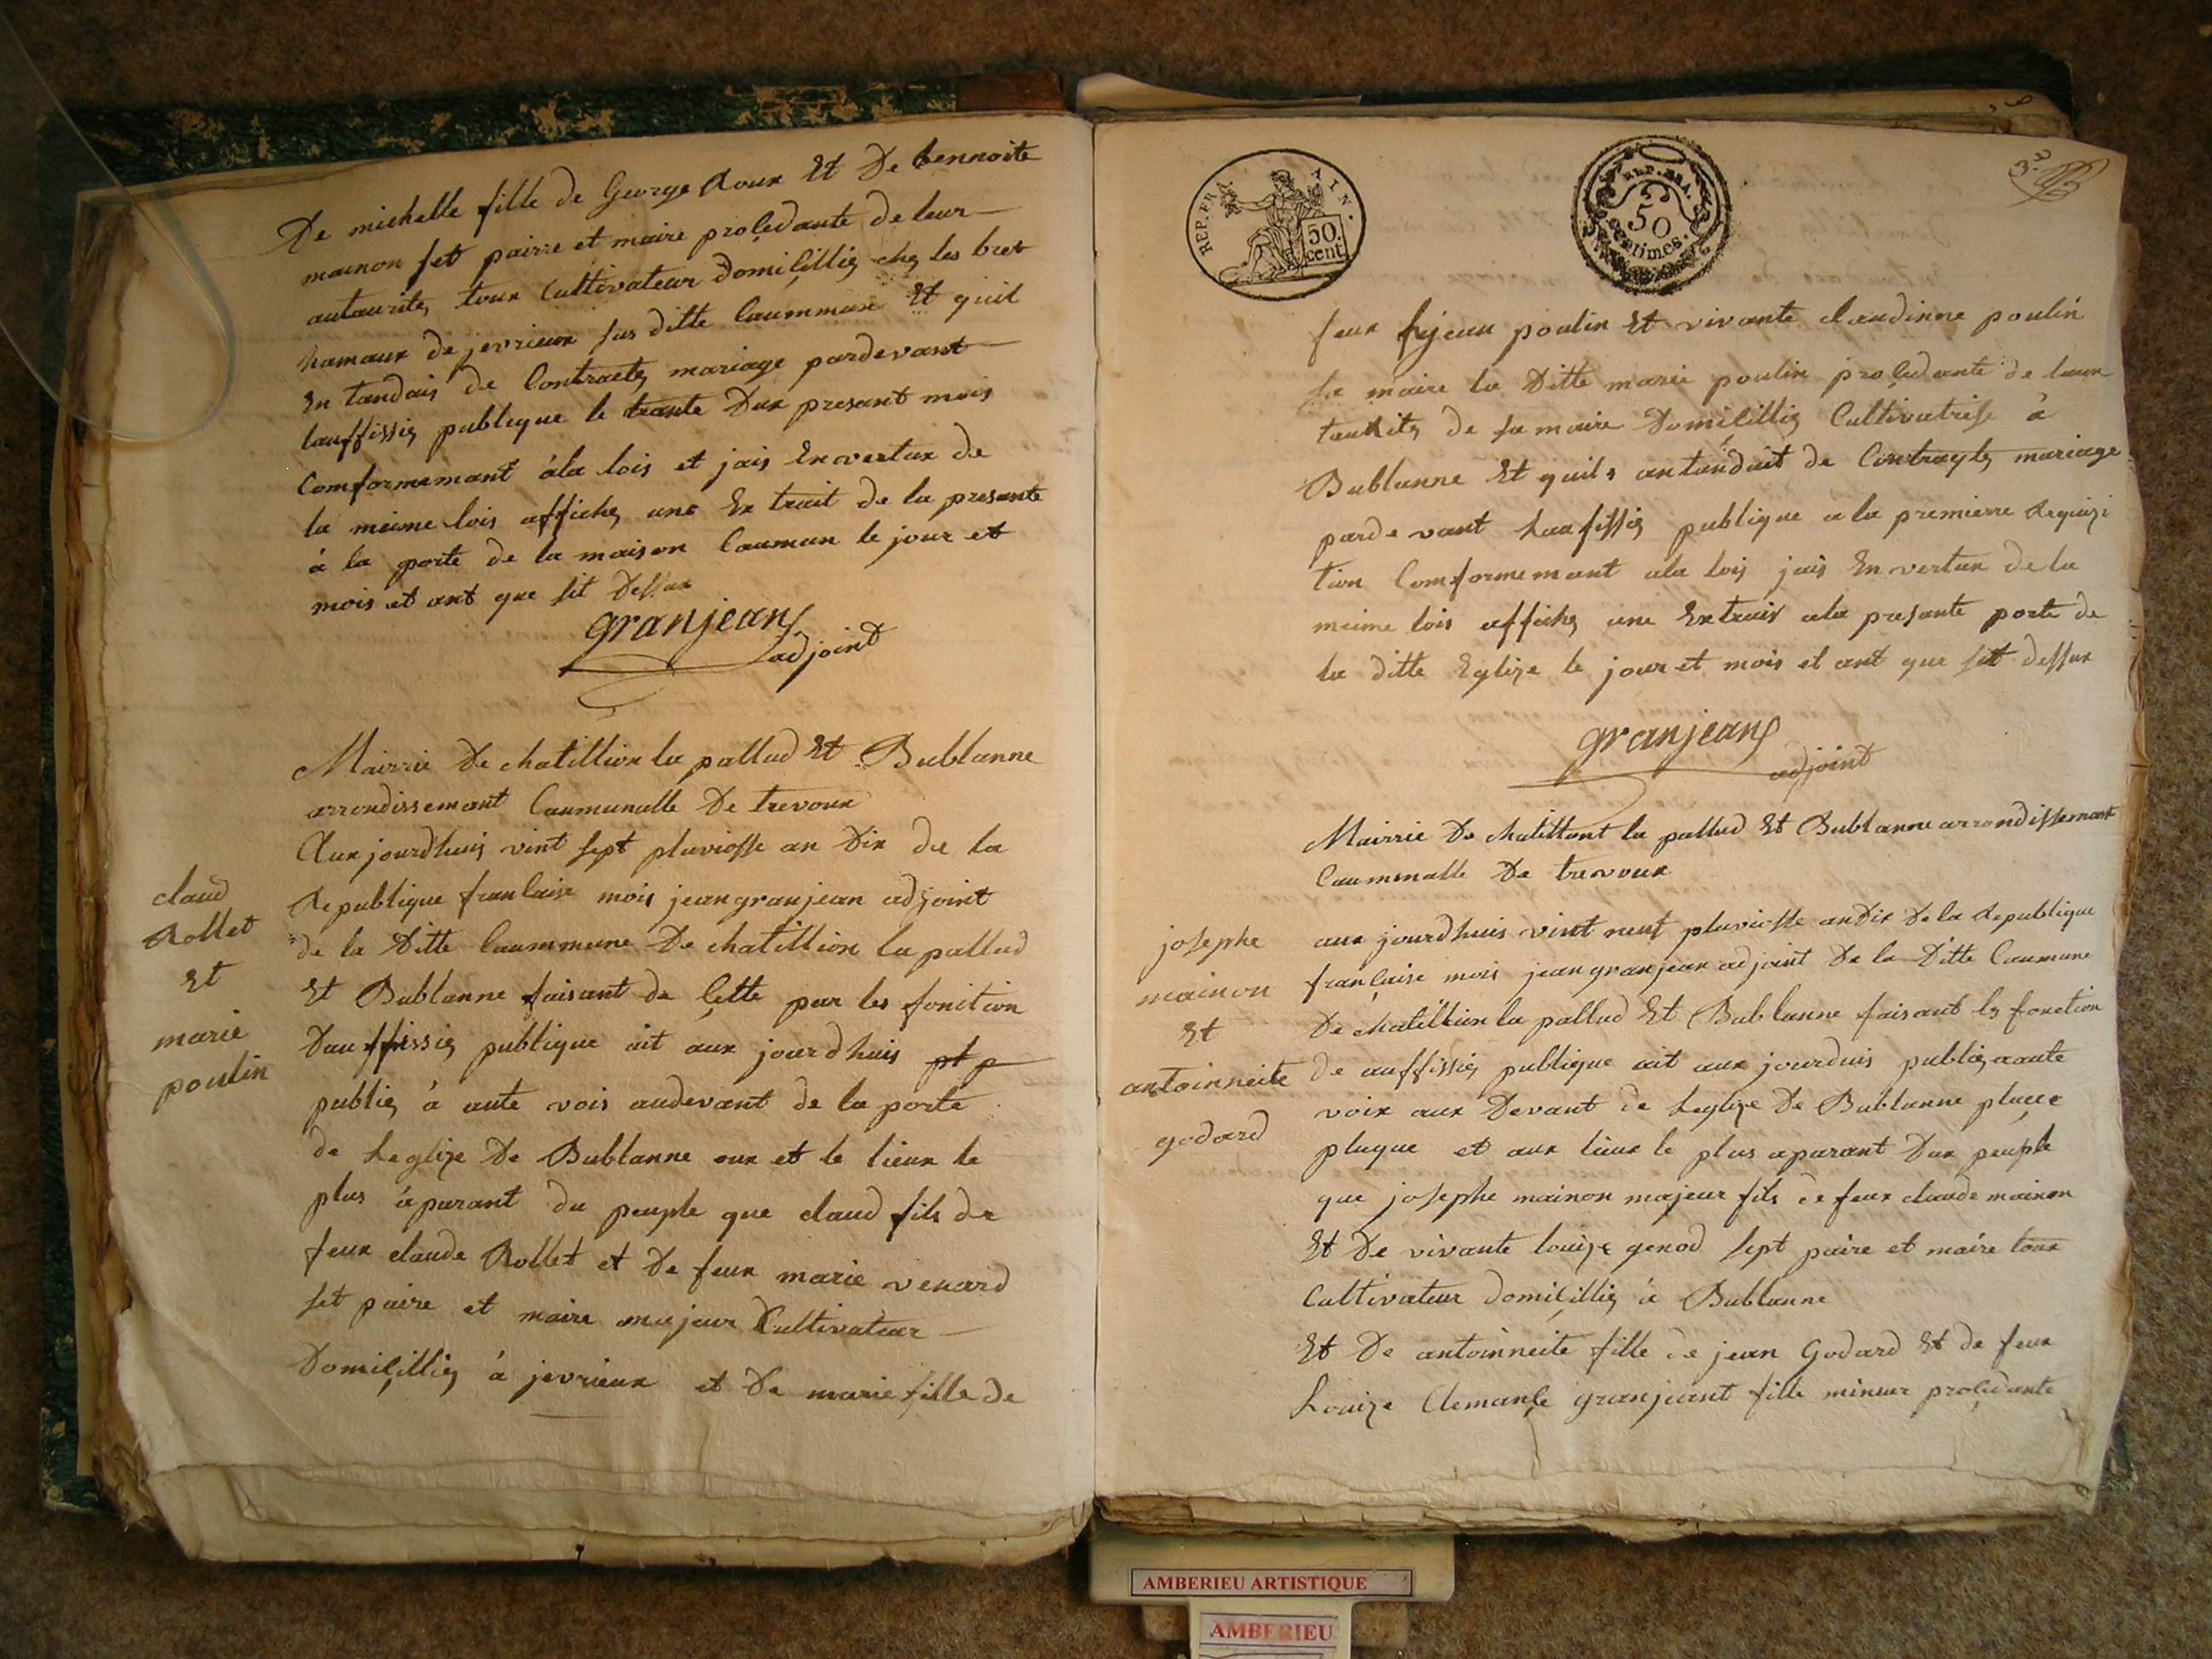 De michelle fille de George Roux Et De bennoite
mainon set pairre et maire proçedante de leur
autaurité, toux Cultivateur domiçillié, ché les bret
hamaux de jevrieux sus ditte Caummune Et quil
En tandais de Contracté mariage pardevant
lauffissié publique le trante Dux presant mois
Comformemant à la lois et jais En vertux de
la meime lois affiché une Extrait de la presante
à la porte de la maison Caumun le jour et
mois et ant que sit Dessux
granjean
adjoint
Mairrie De chatillion la pallud Et Bublanne
arrondissemant Caumunalle De trevoux
Aux jourdhuis vint sept pluviosse an Dix de la
Republique franCaise mois jean granjean adjoint
de la Ditte Caummune De chatillion la pallud
Et Bublanne faisant de Çette par les fonition
Dauffissié publique ait aux jourdhuis
publié à aute vois audevant de la porte
de Leglize De Bublanne oux et le lieux le
plus àparant du peuple que claud fils de
feux claude Rollet et De feux marie venard
set paire et maire majeur Cultivateur
Domiçillié à jevrieux et De marie fille de
claud
Rollet
Et
marie
poulin
REP. FRA.
AIN.
50.
cent
REP. FRA.
50
centimes.
3e
feux jean poulin Et vivante claudinne poulin
sa maire la Ditte marie poulin proçedante de laux
tauxité de sa maire Domiçillié Cultivatrise à
Bublanne Et quils antandait de Contrayté mariage
parde vant Lauffissié publique a la premierre Requizi
tion Comformemant a la lois jais En vertux de la
meime lois affiché une Extrais a la presante porte de
la ditte Eglize le jour et mois et ant que sit dessux
granjean
adjoint
Mairrie De chatillont la pallud Et Bublanne arrondissemant
Caummnalle De trevoux
aux jourdhuis vint neuf pluviosse an Dix De la Republique
française mois jean granjean adjoint De la Ditte Caumune
De chatillion la pallud Et Bublanne faisant lé fonction
de auffissié publique ait aux jourduis publié a aute
voix aux Devant de Leglize De Bublanne plaçce
pluque et aux lieux le plus aparant Dux peuple
que josephe mainon majeur fils de feux claude mainon
Et De vivante louize genod sept paire et maire toux
Cultivateur domiçillié à Bublanne
Et De antoinneite fille de jean Godard Et de feux
Louize Clemançe granjeant fille mineur proçedante
josephe
mainon
Et
antoinneite
godard
AMBERIEU ARTISTIQUE
AMBERIEU